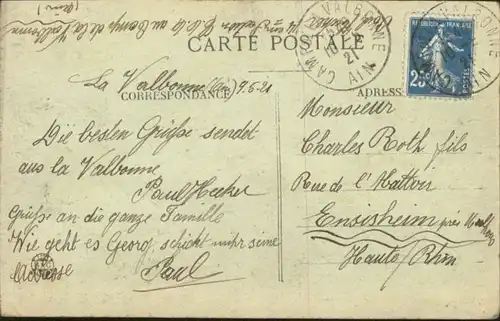 CARTE POSTALE
CORRESPONDANCE
ADRESSE
CAMP VALBONNE
21
AIN
25c
La Valbonne (Ain) 9.5.21
Die besten Grüsse sendet
aus la Valbonne
Paul Hecker
Grüße an die ganze Familie
Wie geht es Georg schickt mihr seine
Adresse
Paul
Monsieur
Charles Roth fils
Rue de l'
Ensisheim près
Haute/Rhin
au Camp de la Valbonne
(Ain)